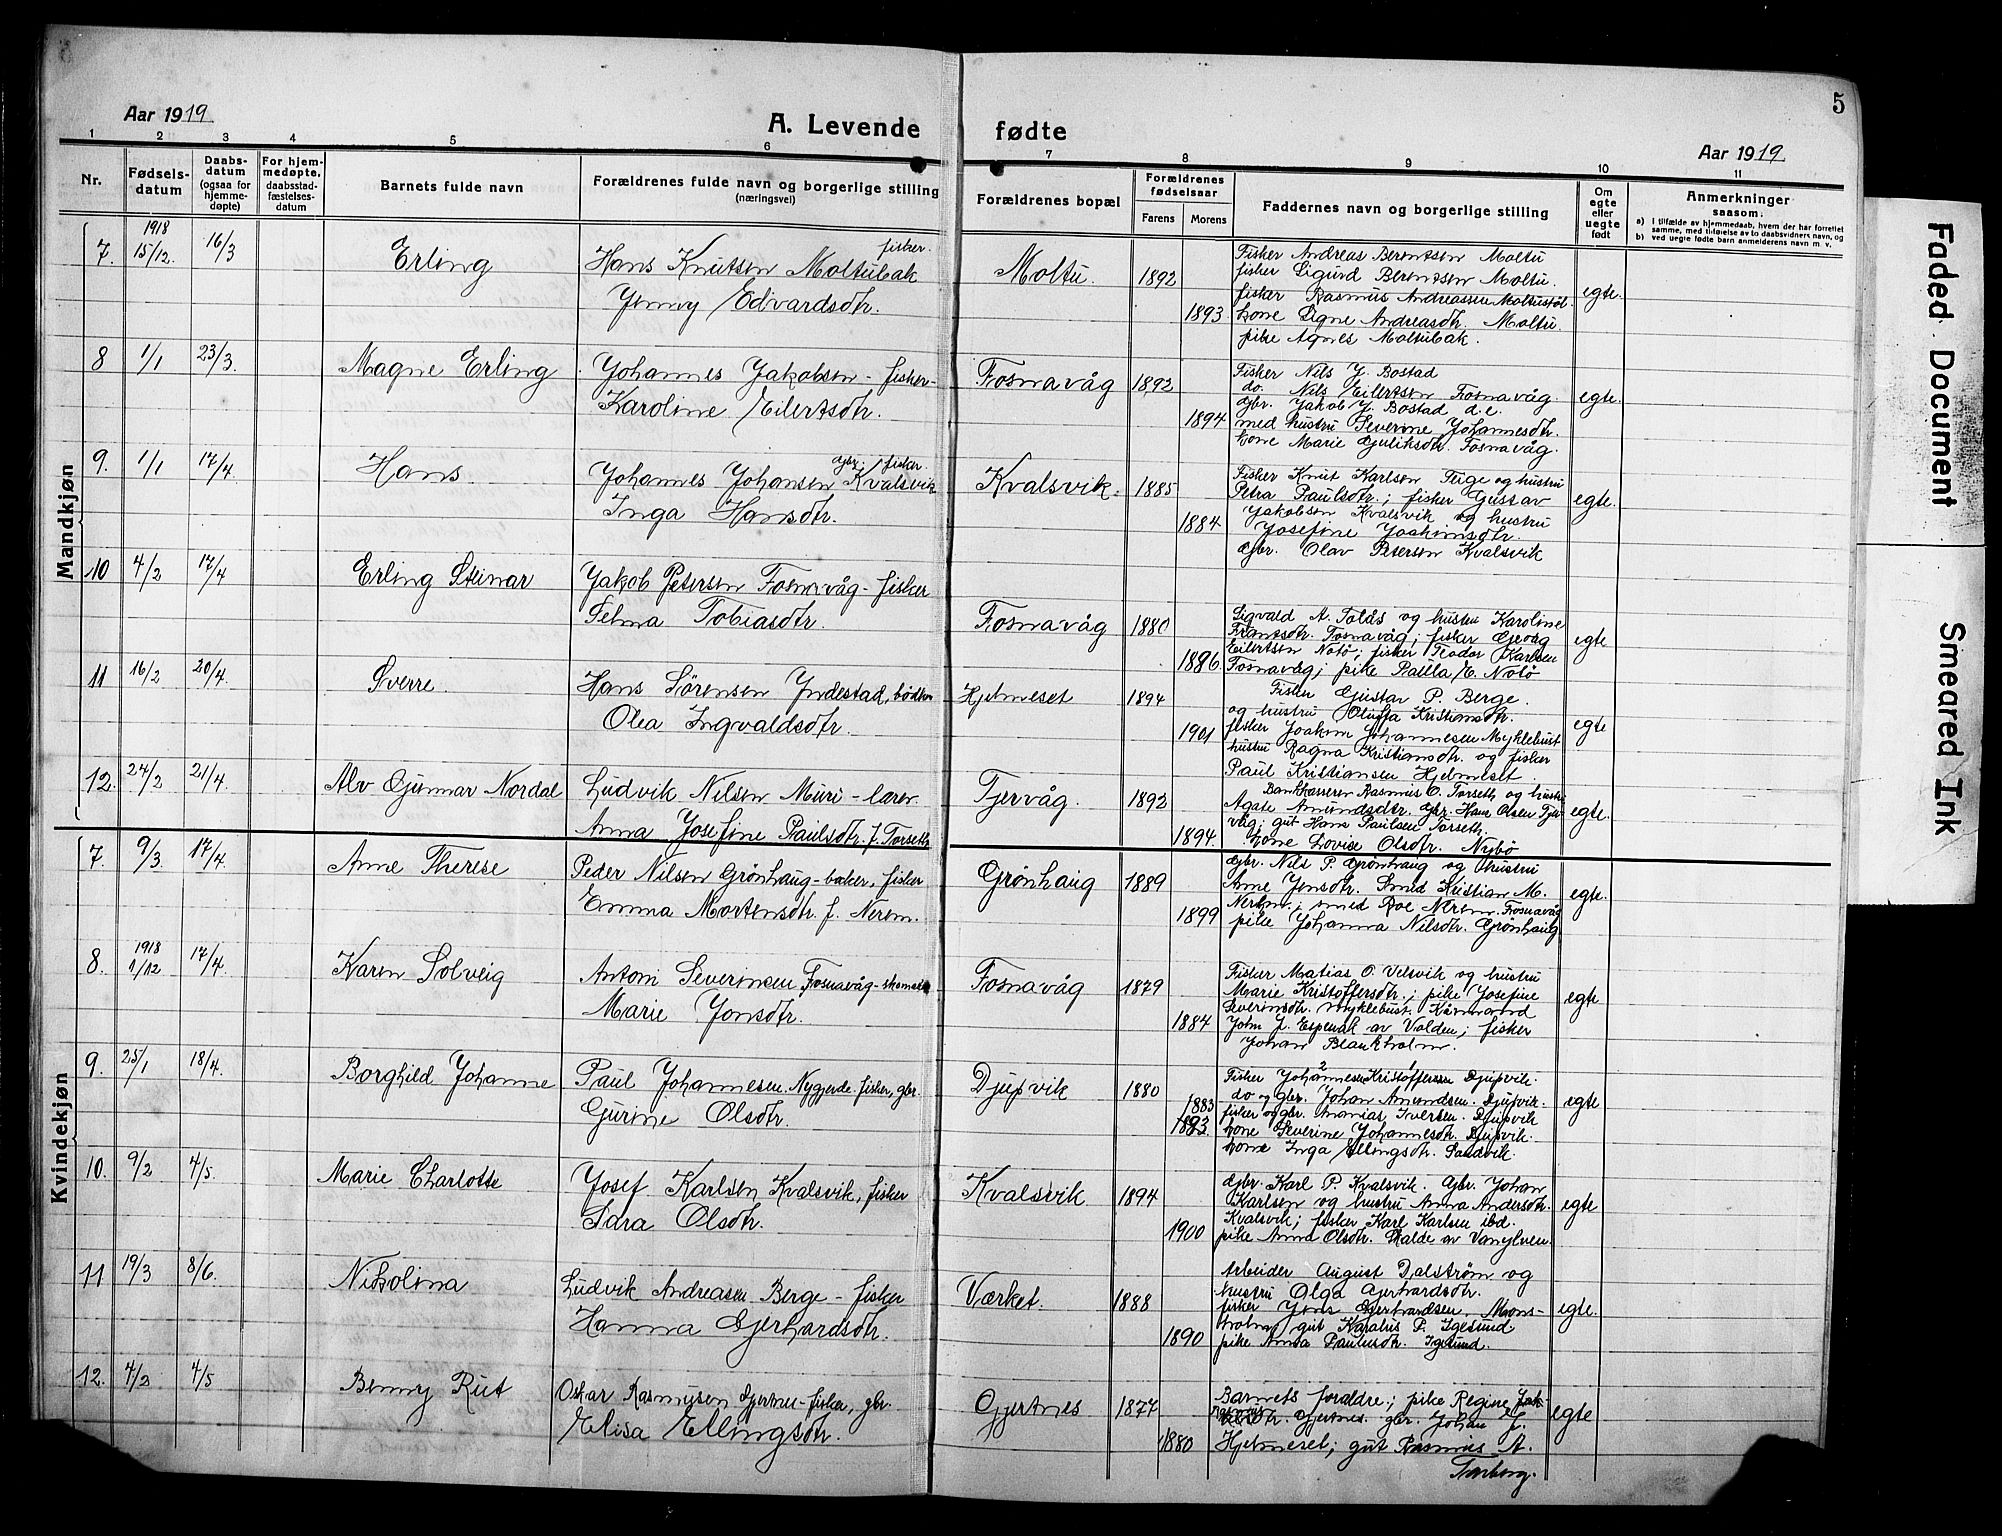 5
Aar 1919
A. Levende fødte
Aar 1919
1 2 3 4 5 6 7 8 9 10 11
Nr. Fødselsdatum Daabsdatum (ogsaa for hjemmedøpte) For hjemmedøpte, daabsstadfæstelsesdatum Barnets fulde navn Forældrenes fulde navn og borgerlige stilling (næringsvei) Forældrenes bopæl Forældrenes fødselsaar Farens Morens Faddernes navn og borgerlige stilling Om egte eller uegte født Anmerkninger saasom:
a) I tilfælde av hjemmedaab, hvem der har forrettet samme, med tilføielse av to daabsvidners navn, og
b) ved uegte fødte barn anmelderens navn m. v.
Mandkjøn
7. 1918 15/12. 16/3 Erling Hans Knutsen Moltubak fisker.
Jenny Edvardsdtr.
Moltu. 1892 1893 egte.
Fisker Andreas Berentsen Moltu
fisker Sigurd Berentsen Moltu.
fisker Rasmus Andreassen Moltustøl.
kone Signe Andreasdtr. Moltu
pike Agnes Moltubak.
8 1/1 23/3. Magne Erling Johannes Jakobsen - fisker -
Karoline Eilertsdtr.
Fosnavåg 1892 1894 egte.
Fisker Nils J. Bostad
do. Nils Eilertsen Fosnavåg.
gbr. Jakob J. Bostad d.e.
med hustru Severine Johannesdtr.
kone Marie Gjuliksdtr. Fosnavåg.
9. 1/1 17/4. Hans. Johannes Johansen Kvalsvik gbr. fisker.
Inga Hansdtr.
Kvalsvik. 1885 1884 egte.
Fisker Knut Karlsen Teige og hustru
Petra Paulsdtr.; fisker Gustav
Jakobsen Kvalsvik og hustru
Josefine Joakimsdtr.
gbr. Olav Petersen Kvalsvik
10 4/2 17/4 Erling Steinar Jakob Petersen Fosnavåg - fisker
Selma Tobiasdtr.
Fosnavåg 1880 1896. egte
Sigvald A. Tolås og hustru Karoline
Frantsdtr. Fosnavåg; fisker Georg
Eilertsen Notø; fisker Teodor Karlsen
Fosnavåg; pike Paula E. Notø
11 16/2 20/4. Sverre. Hans Sørensen Yndestad, bødker
Olea Ingvaldsdtr.
Hjelmeset 1894 1901 egte
Fisker Gustav P. Berge.
og hustru Oluffa Kristiansdtr.
fisker Joakim Johannesen Myklebust
hustru Ragna Kristiansdtr. og fisker
Paul Kristiansen Hjelmeset.
12. 24/2 21/4. Alv Gunnar Nordal Ludvik Nilsen Muri - lærer.
Anna Josefine Paulsdtr. f. Torseth
Tjervåg. 1892 1894. egte.
Bankkasserer Rasmus O. Torseth og hustru
Agate Amundsdtr. gbr. Hans Olsen Tjervåg;
gut Hans Paulsen Torseth.
kone Lovise Olsdtr. Nybø
Kvindekjøn
7. 9/3. 17/4. Anne Therese Peder Nilsen Grønhaug - baker, fisker
Emma Mortensdtr. f. Nerem.
Grønhaug 1889 1899 egte.
gbr. Nils P. Grønhaug og hustru
Anne Jensdtr. Smed Kristian M.
Nerem; smed Roe Nerem. Fosnavåg
pike Johanna Nilsdtr. Grønhaug
8. 1918 1/12 17/4. Karen Solveig Antoni Severinsen Fosnavåg - skomaker
Marie Jonsdtr.
Fosnavåg 1879 1884 egte
Fisker Matias O. Velsvik og hustru
Marie Kristoffersdtr.; pike Josefine
Severinsdtr. Myklebust.
John J. Espenak av Valden; fisker
Johan Blankholm.
9. 25/1 18/4. Borghild Johanne Paul Johannesen Nygjerde - fisker, gbr.
Gurine Olsdtr.
Djupvik 1880 1883 1893. egte
Fisker Johannesen Kristoffersen Djupvik.
do og gbr. Johan Amundsen. Djupvik.
fisker og gbr. Ananias Iversen. Djupvik
kone Severine Johannesdtr. Djupvik.
kone Inga Ellingsdtr. Sandvik.
10. 9/2 4/5. Marie Charlotte Josef Karlsen Kvalsvik, fisker
Sara Olsdtr.
Kvalsvik 1894 1900 egte
gbr. Karl P. Kvalsvik. gbr. Johan
Karlsen og hustru Anna Andersdtr.
Kvalsvik; fisker Karl Karlsen ibd.
pike Anna Olsdtr. Skalde av Vanylven.
11 19/3 8/6. Nikolina Ludvik Andreasen Berge - fisker
Hanna Gjerhardsdtr.
Værket. 1888 1890 egte.
Arbeider August Dalstrøm og
hustru Olga Gjerhardsdtr.
fisker Jens Gjerhardsen Monsholm,
gut Karalus P. Igesund.
pike Anna Paulusdtr. Igesund.
12. 4/2 4/5 Benny Rut Oskar Rasmusen Gjertnes - fisker, gbr.
Elisa Ellingsdtr.
Gjertnes 1877 1880 egte
Barnets foraldre; pike Regine
Gjertnes. gbr. Johan L.
Hjelmeset; gut Rasmus A.
Torberg.
Faded Document
Smeared Ink